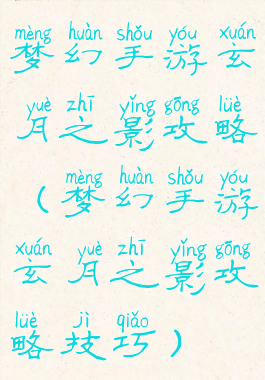 mèng huàn shǒu yóu xuán
梦幻手游玄
yuè zhī yǐng gōng lüè
月之影攻略
mèng huàn shǒu yóu
（梦幻手游
xuán yuè zhī yǐng gōng
玄月之影攻
lüè jì qiǎo
略技巧）